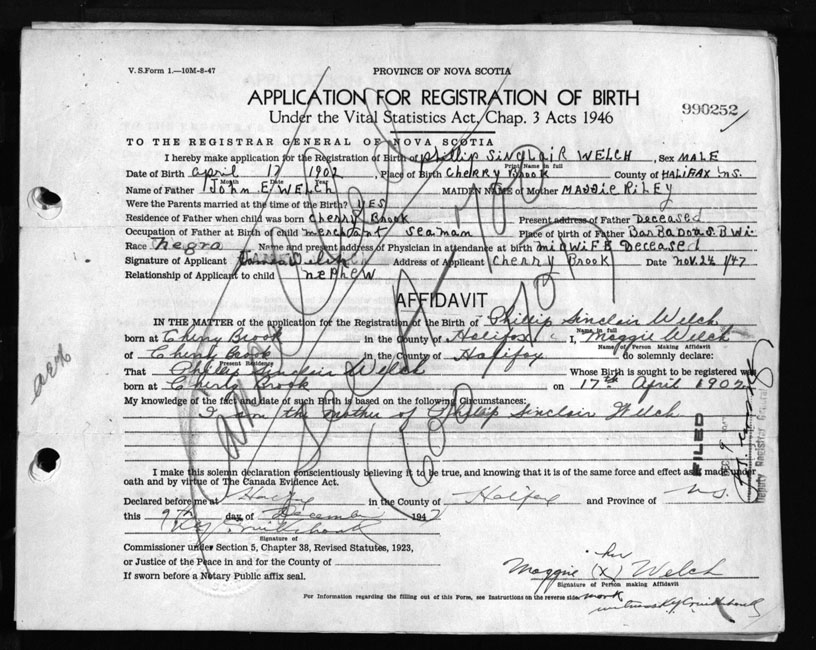 V. S. Form 1.—10M-8-47
PROVINCE OF NOVA SCOTIA
APPLICATION FOR REGISTRATION OF BIRTH
990252
Under the Vital Statistics Act, Chap. 3 Acts 1946
TO THE REGISTRAR GENERAL OF NOVA SCOTIA
I hereby make application for the Registration of Birth of Phillip SINCLAIR WELCH, Sex MALE
Print Name in full
Date of Birth April 17 1902, Place of Birth CHERRY Brook County of HALIFAX N.S.
Month Date
Name of Father John E WELCH MAIDEN NAME of Mother MAGGIE RILEY
Were the Parents married at the time of the Birth? YES
Residence of Father when child was born Cherry Brook Present address of Father Deceased
Occupation of Father at Birth of child merchant seaman Place of birth of Father BarBADOUS. B W i
Race negro Name and present address of Physician in attendance at birth midWiFE Deceased
Signature of Applicant Address of Applicant Cherry Brook Date Nov. 24 /47
Relationship of Applicant to child nephew
AFFIDAVIT
IN THE MATTER of the application for the Registration of the Birth of Phillip Sinclair Welch
Name in full
born at Cherry Brook in the County of Halifax I, Maggie Welch
Name of Person Making Affidavit
of Cherry Brook in the County of Halifax do solemnly declare:
Present Residence
That Phillip Sinclair Welch Whose Birth is sought to be registered was
born at Cherry Brook on 17th April 1902
My knowledge of the fact and date of such Birth is based on the following Circumstances:
I am the mother of Phillip Sinclair Welch
FILED
Deputy Registrar General
I make this solemn declaration conscientiously believing it to be true, and knowing that it is of the same force and effect as if made under
oath and by virtue of The Canada Evidence Act.
Declared before me at Halifax in the County of Halifax and Province of N.S.
this 9th day of December 1947
Signature of
Commissioner under Section 5, Chapter 38, Revised Statutes, 1923,
or Justice of the Peace in and for the County of
If sworn before a Notary Public affix seal.
her
Maggie (X) Welch
Signature of Person making Affidavit
mark
For Information regarding the filling out of this Form, see Instructions on the reverse side.
witness